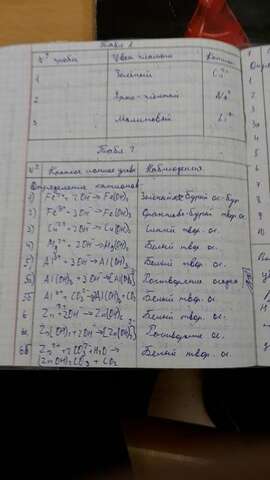 Табл 1
№ пробы Цвет пламени Катион
1 Зелёный Cu²⁺
2 Ярко-жёлтый Na⁺
3 Малиновый Li⁺
Табл 2
№ Краткое ионное уравн Наблюдения
Определение катионов
1) Fe²⁺ + 2OH⁻ → Fe(OH)₂
2) Fe³⁺ + 3OH⁻ → Fe(OH)₃ бурый твор. ос.
3) Cu²⁺ + 2OH⁻ → Cu(OH)₂ Синий твор. ос.
4) Mg²⁺ + 2OH⁻ → Mg(OH)₂ Белый твор. ос.
5) Al³⁺ + 3OH⁻ → Al(OH)₃ Белый твор. ос.
5а) Al(OH)₃ + 3OH⁻ → [Al(OH)₆]³⁻ Растворение осадка
5б) Al³⁺ + CO₃²⁻ → Al(OH)₃ + CO₂ Белый твор. ос.
6 Zn²⁺ + 2OH⁻ → Zn(OH)₂ Белый твор. ос.
6а Zn(OH)₂ + 2OH⁻ → [Zn(OH)₄]²⁻ Растворение ос.
6б Zn²⁺ + 2CO₃²⁻ + H₂O → Белый твор. ос.
(ZnOH)₂CO₃ + CO₂
1
2
3
3а
4
5
6
7
8
9
10